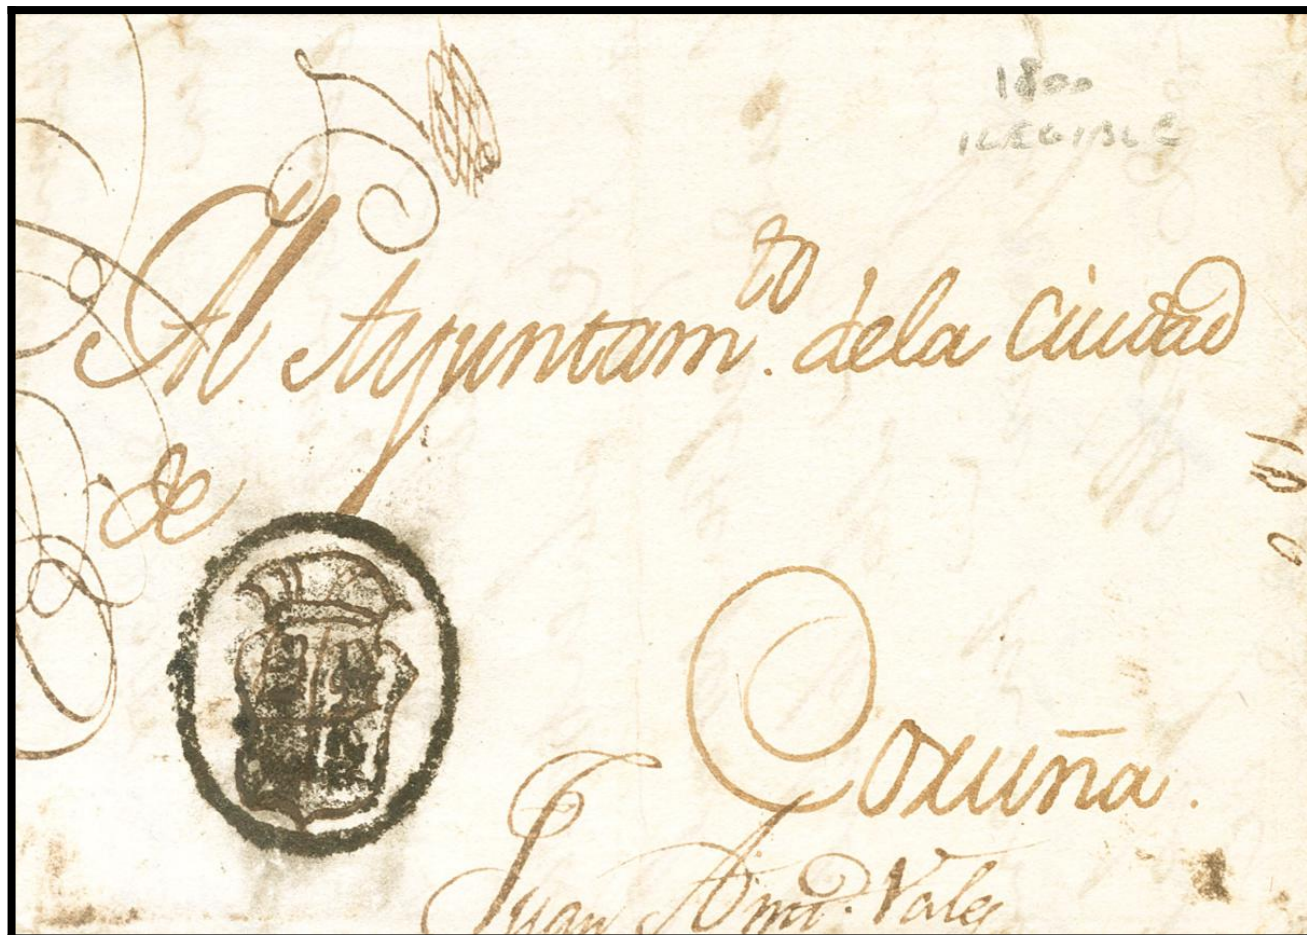 1800
ILEGIBLE
Al Ayuntam.to dela Ciudad
de
Coruña.
Juan